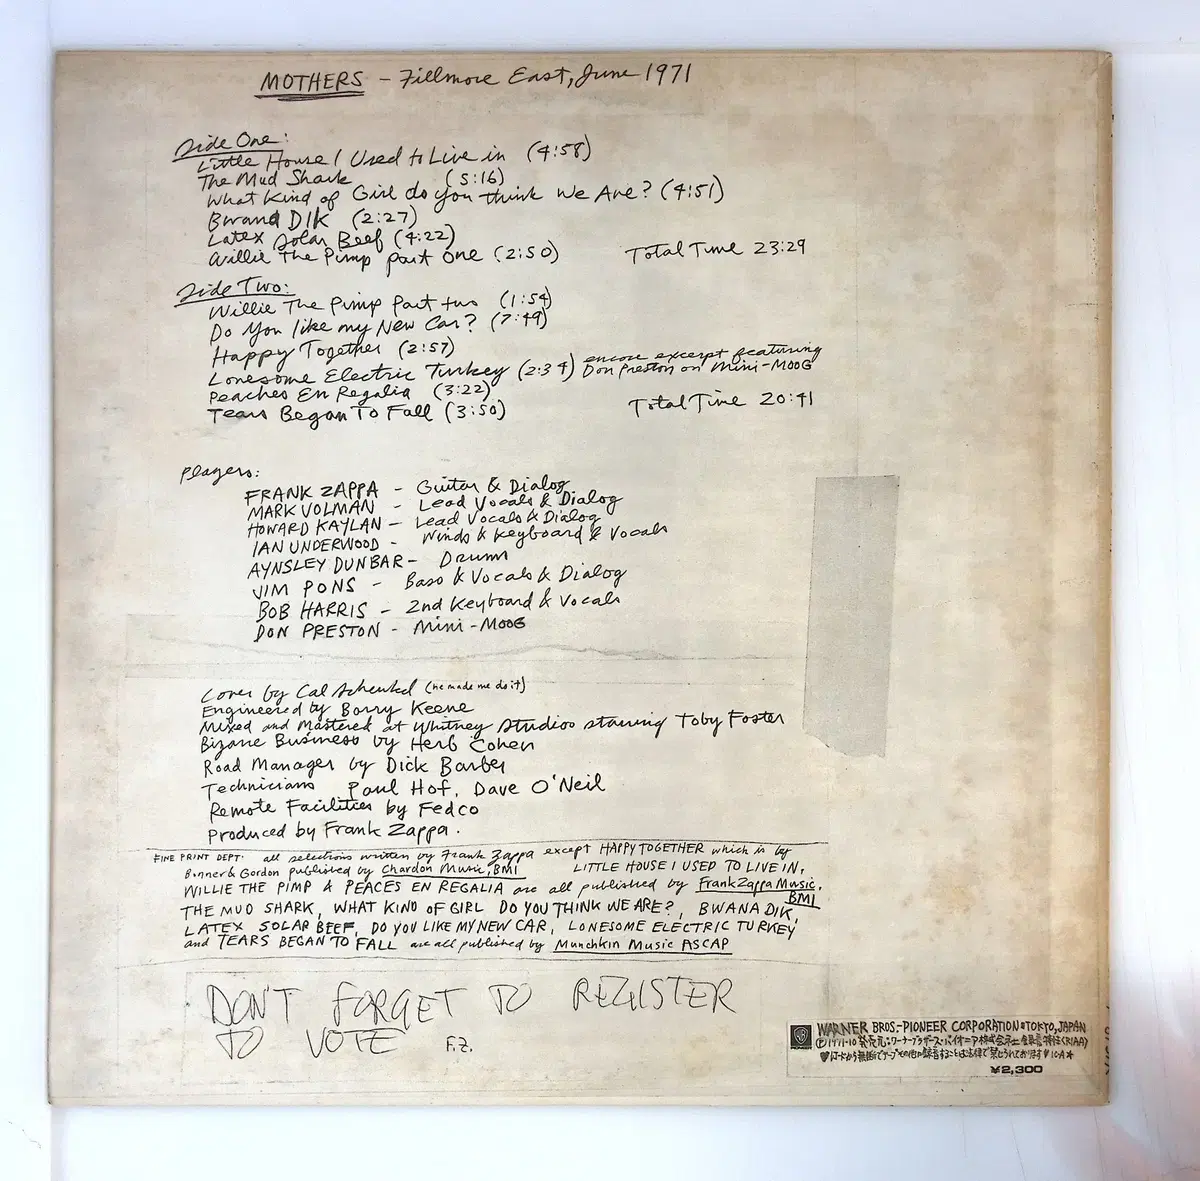 MOTHERS - Fillmore East, June 1971
Side One:
Little House I Used to Live in (4:58)
The Mud Shark (5:16)
What Kind of Girl do you think We Are? (4:51)
Bwana DIK (2:27)
Latex Solar Beef (4:22)
Willie The Pimp part One (2:50) Total Time 23:29
Side Two:
Willie The Pimp Part two (1:54)
Do You like my New Car? (7:49)
Happy Together (2:57)
Lonesome Electric Turkey (2:34) encore excerpt featuring Don Preston on Mini-MOOG
Peaches En Regalia (3:22)
Tears Began To Fall (3:50) Total Time 20:41
Players:
FRANK ZAPPA - Guitar & Dialog
MARK VOLMAN - Lead Vocals & Dialog
HOWARD KAYLAN - Lead Vocals & Dialog
IAN UNDERWOOD - Winds & Keyboard & Vocals
AYNSLEY DUNBAR - Drums
JIM PONS - Bass & Vocals & Dialog
BOB HARRIS - 2nd Keyboard & Vocals
DON PRESTON - Mini-MOOG
Cover by Cal Schenkel (he made me do it)
Engineered by Barry Keene
Mixed and Mastered at Whitney Studios starring Toby Foster
Bizarre Business by Herb Cohen
Road Manager by Dick Barber
Technicians Paul Hof, Dave O'Neil
Remote Facilities by Fedco
Produced by Frank Zappa.
FINE PRINT DEPT. all selections written by Frank Zappa except HAPPY TOGETHER which is by
Bonner & Gordon published by Chardon Music, BMI LITTLE HOUSE I USED TO LIVE IN,
WILLIE THE PIMP & PEACES EN REGALIA are all published by Frank Zappa Music,
BMI
THE MUD SHARK, WHAT KIND OF GIRL DO YOU THINK WE ARE?, BWANA DIK,
LATEX SOLAR BEEF, DO YOU LIKE MY NEW CAR, LONESOME ELECTRIC TURKEY
and TEARS BEGAN TO FALL are all published by Munchkin Music ASCAP
DON'T FORGET TO REGISTER
TO VOTE F.Z.
WARNER BROS.-PIONEER CORPORATION TOKYO, JAPAN
Ⓟ1971·10 発売元:ワーナー・ブラザース・パイオニア株式会社 (RIAA)
¥2,300